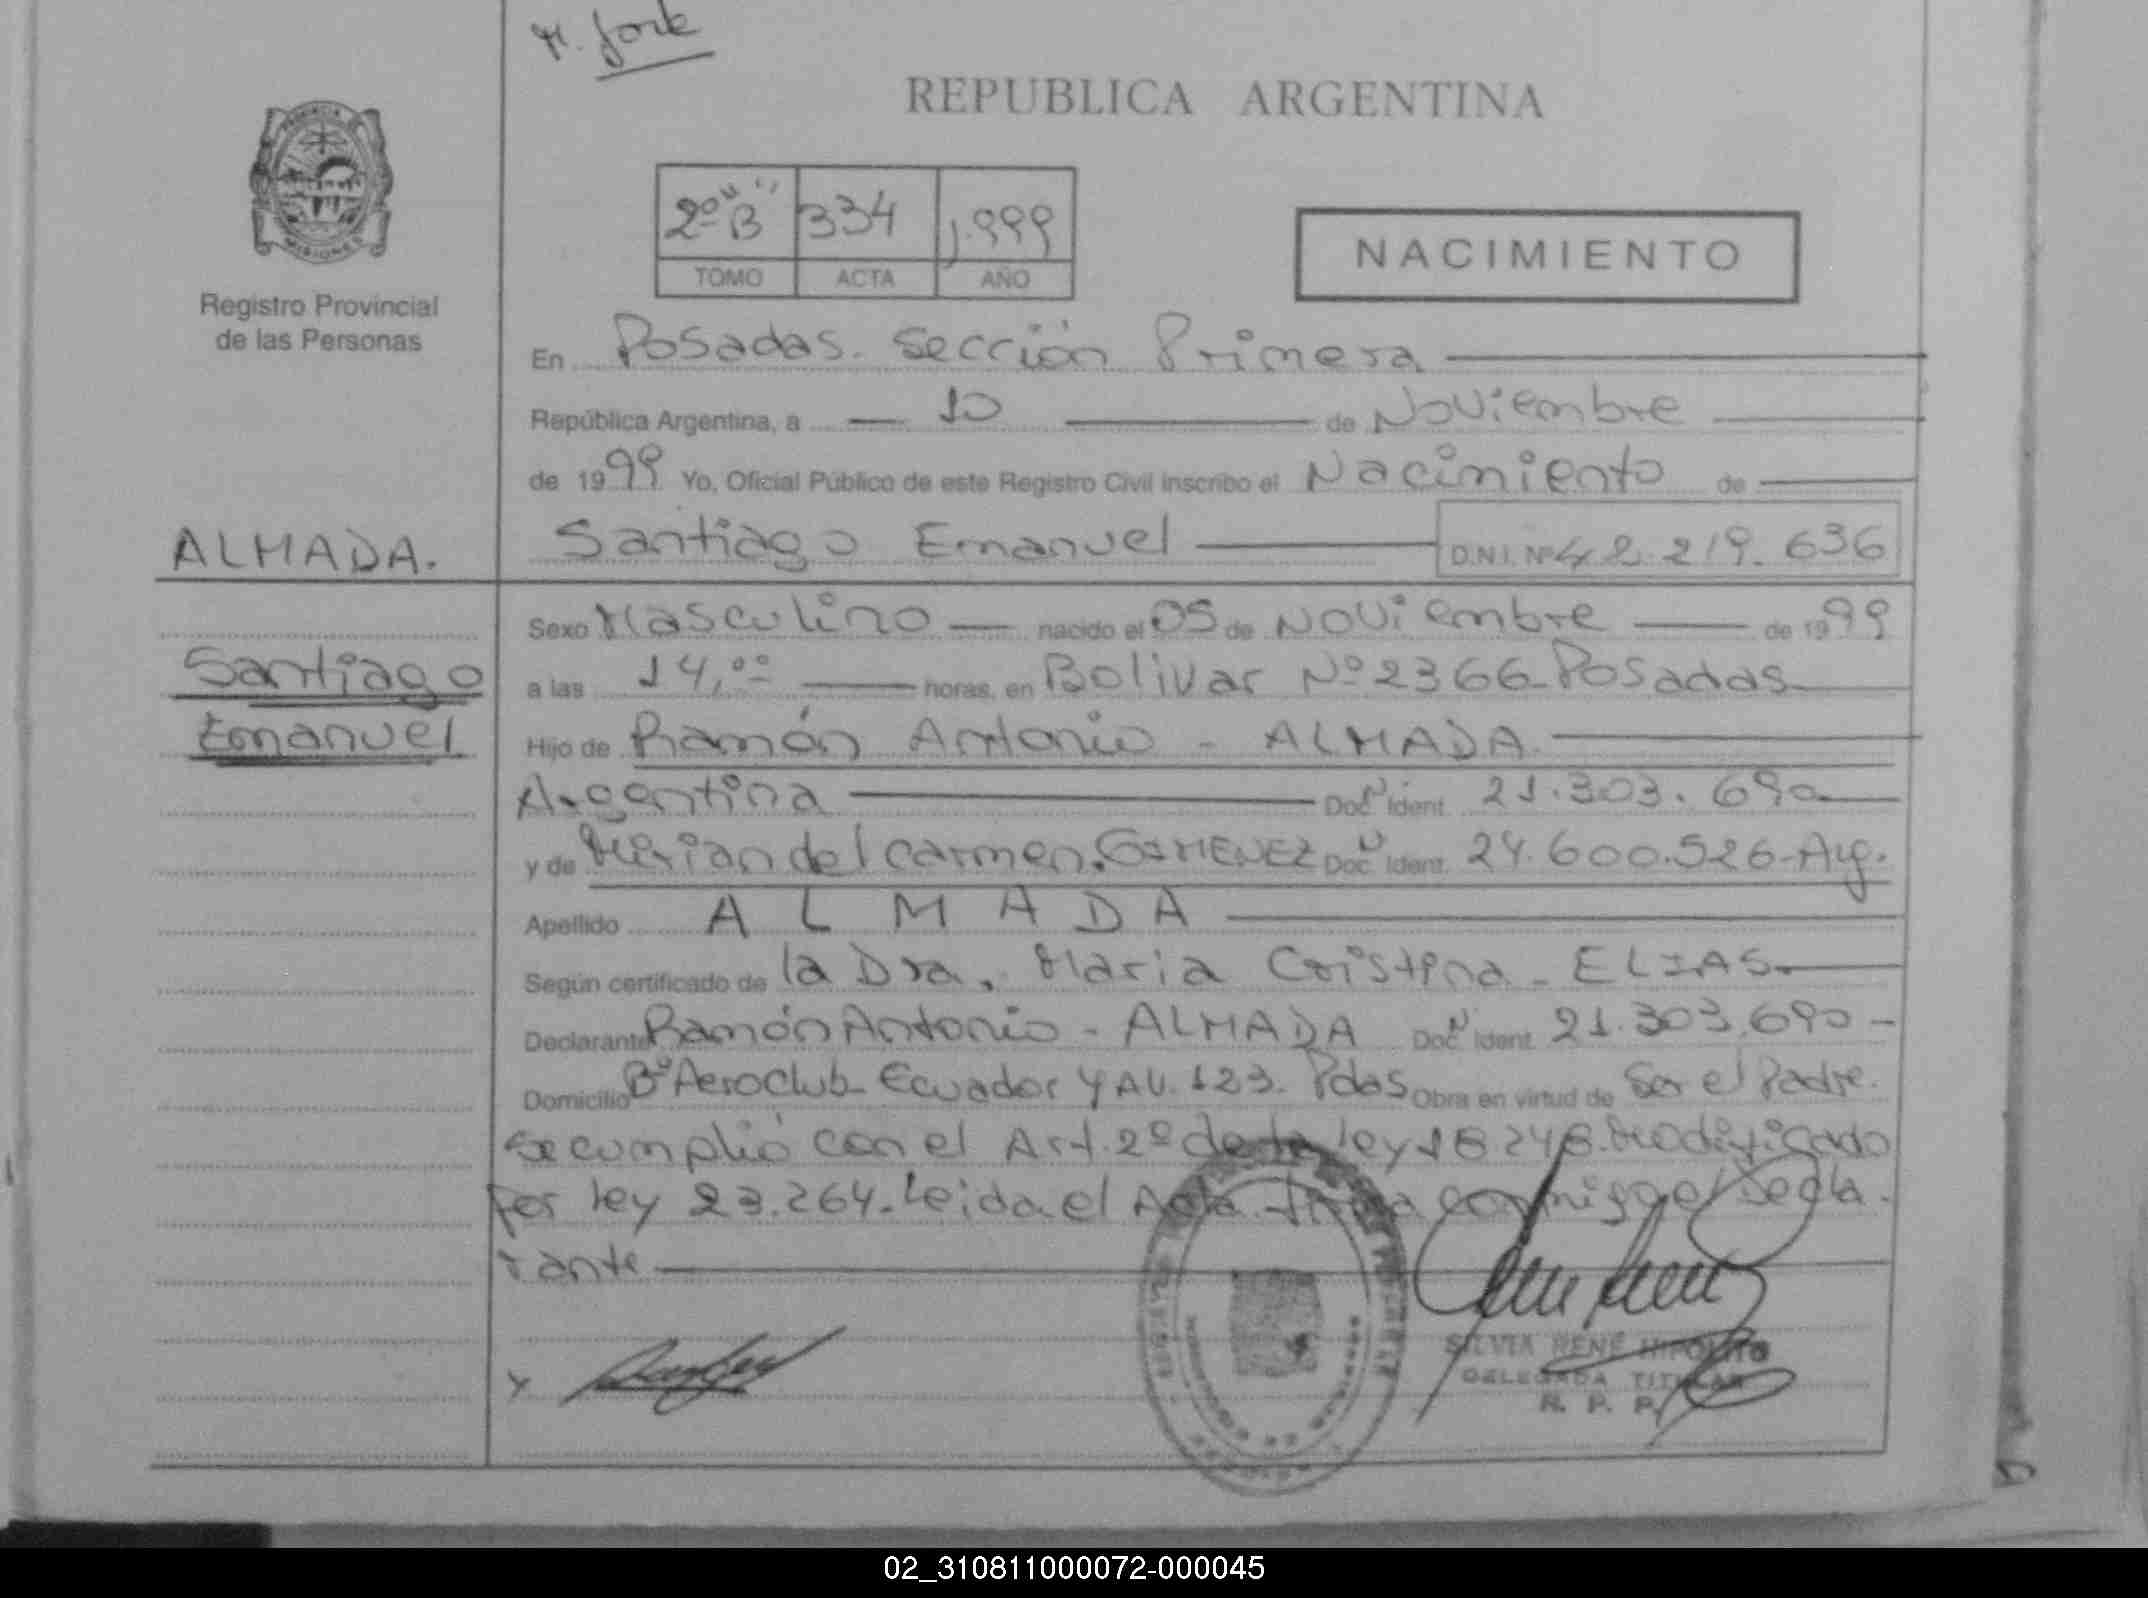 REPUBLICA ARGENTINA
PROVINCIA DE
MISIONES
Registro Provincial
de las Personas
2º "B" 334 1.999
TOMO ACTA AÑO
NACIMIENTO
En Posadas. Sección Primera
República Argentina, a 10 de Noviembre
de 1999 Yo, Oficial Público de este Registro Civil inscribo el Nacimiento de
ALMADA. Santiago Emanuel D.N.I. Nº 42.219.636
Sexo Masculino nacido el 05 de Noviembre de 1999
Santiago a las 14,ºº horas, en Bolivar Nº 2366-Posadas
Emanuel Hijo de Ramón Antonio - ALMADA
Argentina Doc. Ident. 21.303.690
y de Mirian del Carmen. GIMENEZ Doc. Ident. 24.600.526-Arg.
Apellido ALMADA
Según certificado de la Dra. Maria Cristina - ELIAS.
Declarante Ramón Antonio - ALMADA Doc. Ident. 21.303.690-
Domicilio Bº Aeroclub Ecuador y AV. 123. Pdas Obra en virtud de Ser el Padre.
se cumplió con el Art. 2º de la ley 18.248. Modificado
Por ley 23.264. Leida el Acta firma conmigo el Decla-
rante
SILVIA RENÉ HIPOLITO
DELEGADA TITULAR
R. P. P.
02_310811000072-000045